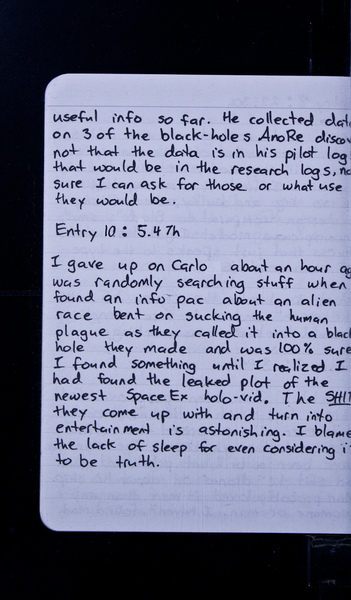 useful info so far. He collected data
on 3 of the black-holes AnoRe discov
not that the data is in his pilot log
that would be in the research logs, no
sure I can ask for those or what use
they would be.
Entry 10: 5.47h
I gave up on Carlo about an hour ag
was randomly searching stuff when
found an info pac about an alien
race bent on sucking the human
plague as they called it into a blac
hole they made and was 100% sure
I found something until I realized I
had found the leaked plot of the
newest SpaceEx holo-vid. The SHIT
they come up with and turn into
entertainment is astonishing. I blame
the lack of sleep for even considering i
to be truth.